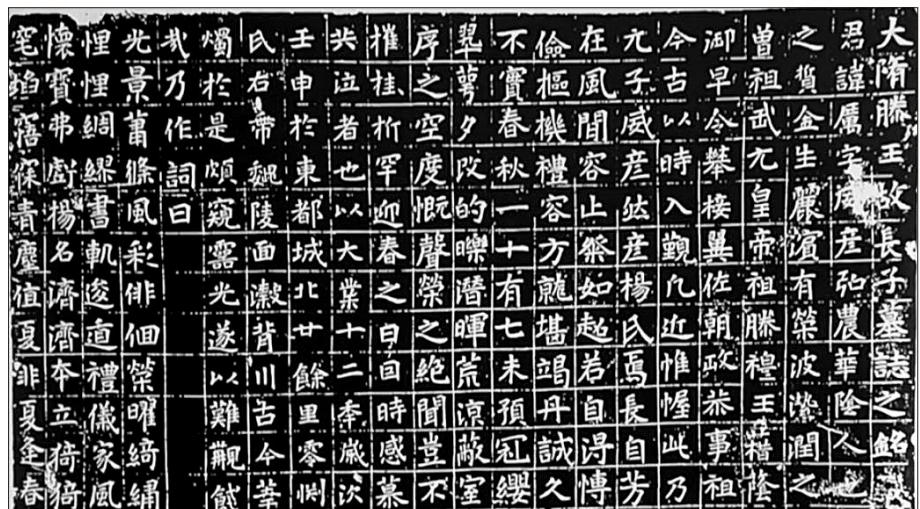 大隋滕王故長子墓誌之銘
君諱厲字威彦弘農華陰人也
之質金生麗濵有榮波瀠潤之
曽祖武元皇帝祖滕穆王楷陰
御早令攀接翼佐朝政恭事祖
今古以時入觀凢近惟幄此乃
元子威彦然彦楊氏焉長自芳
在風聞容止祭如起若自淂慱
儉樞機禮容方就堪竭丹誠久
不實春秋一十有七未預冠纓
翠萼夕改的皪潛暉荒涼蔽室
序之空度慨聲榮之絶聞豈不
摧桂折罕迎春之日曰時感慕
共泣者也以大業十二秊嵗次
壬申於東都城北廿餘里零渕
氏右帶陵面瀔背川古今華
燭於是頗窺露光遂以難觀餞
哉乃作詞曰
光景蕭條風彩俳佪榮曜綺繡
悝悝綢繆書軌逡逎禮儀家風
懐寶弗戲楊名濟濟夲立猗猗
窀窹寐青值夏誹夏逢春